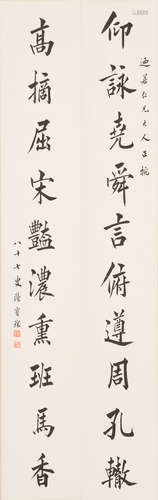 迪菴仁兄大人正腕
仰詠堯舜言俯遵周孔轍
高摘屈宋豔濃熏班馬香
八十七叟陸寶